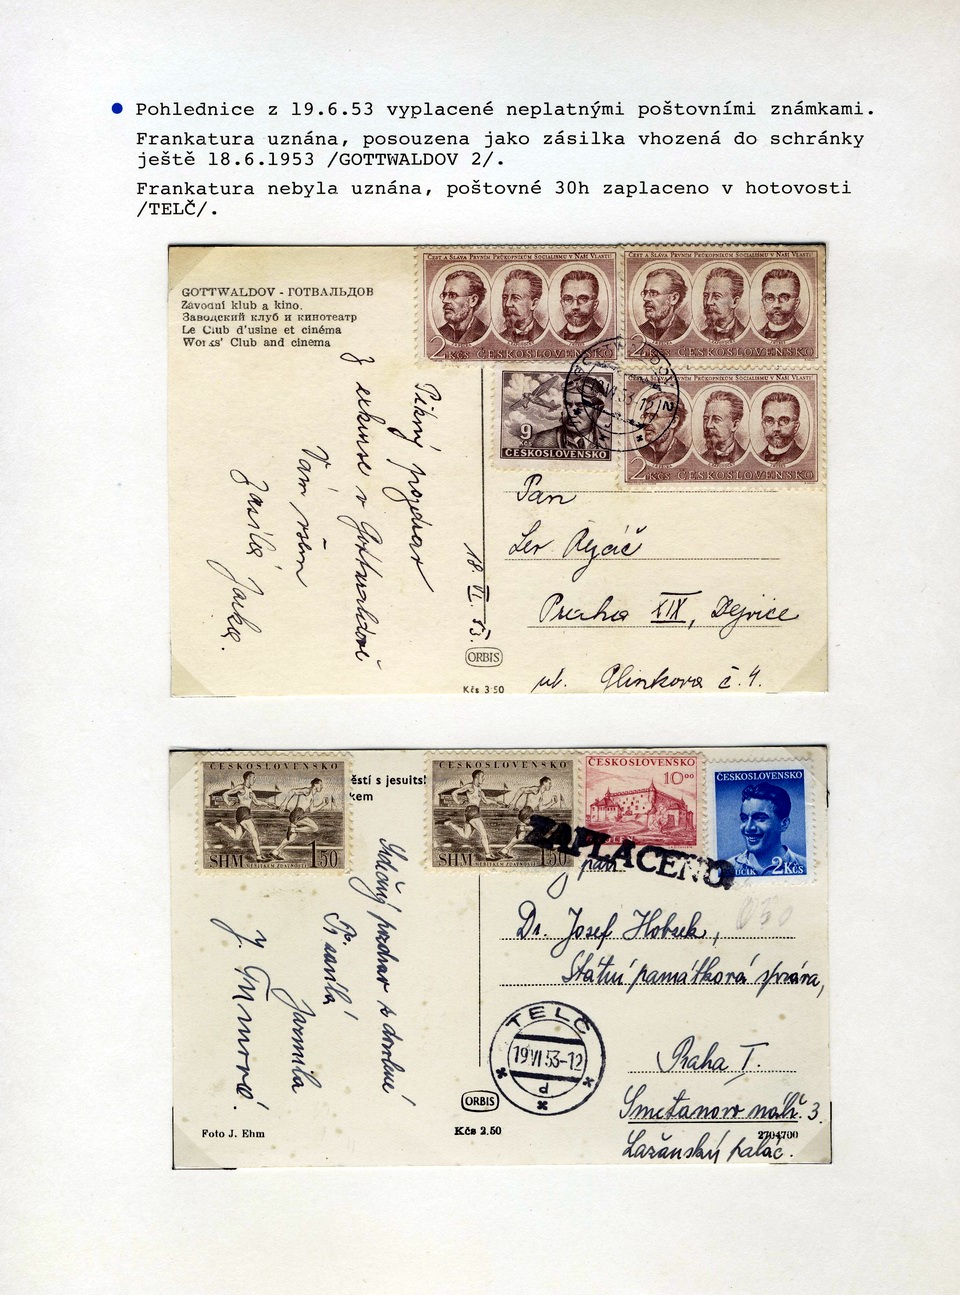 Pohlednice z 19.6.53 vyplacené neplatnými poštovními známkami.
Frankatura uznána, posouzena jako zásilka vhozená do schránky
ještě 18.6.1953 /GOTTWALDOV 2/.
Frankatura nebyla uznána, poštovné 30h zaplaceno v hotovosti
/TELČ/.
GOTTWALDOV - ГОТВАЛЬДОВ
Závodní klub a kino.
Заводский клуб и кинотеатр
Le Club d'usine et cinéma
Works' Club and cinema
ČEST A SLÁVA PRVNÍM PRŮKOPNÍKŮM SOCIALISMU V NAŠÍ VLASTI
2 KČS ČESKOSLOVENSKO
ČEST A SLÁVA PRVNÍM PRŮKOPNÍKŮM SOCIALISMU V NAŠÍ VLASTI
2 KČS ČESKOSLOVENSKO
9 Kčs
ČESKOSLOVENSKO
PRVNÍM PRŮKOPNÍKŮM SOCIALISMU V NAŠÍ VLASTI
2 KČS ČESKOSLOVENSKO
19.VI.53-12
2
Pěkný pozdrav
z exkurse v Gottwaldově
Vám všem
zasílá Jarka.
18. VI. 53.
Pan
Praha XIX, Dejvice
ul. Glinkova č. 4.
ORBIS
Kčs 3·50
ČESKOSLOVENSKO
SHM 1.50
ěstí s jesuits
kem
ČESKOSLOVENSKO
SHM 1.50
ČESKOSLOVENSKO
10⁰⁰
ČESKOSLOVENSKO
2 Kčs
ZAPLACENO
Srdečný pozdrav z dovolené
Ti zasílá
Jarmila
Dr. Josef Hobzek,
Státní památková správa,
Praha I.
Smetanovo nábř. 3
Lažanský palác.
TELČ
19 VI 53-12
d
ORBIS
Kčs 2.50
Foto J. Ehm
2704700